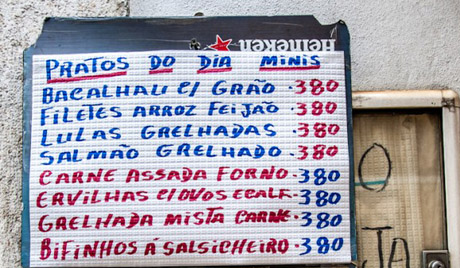 Heineken
PRATOS DO DIA MINIS
BACALHAU C/ GRÃO .380
FILETES ARROZ FEIJÃO .380
LULAS GRELHADAS .380
SALMÃO GRELHADO .380
CARNE ASSADA FORNO .380
ERVILHAS C/OVOS ECALF. .380
GRELHADA MISTA CARNE .380
BIFINHOS Á SALSICHEIRO .380